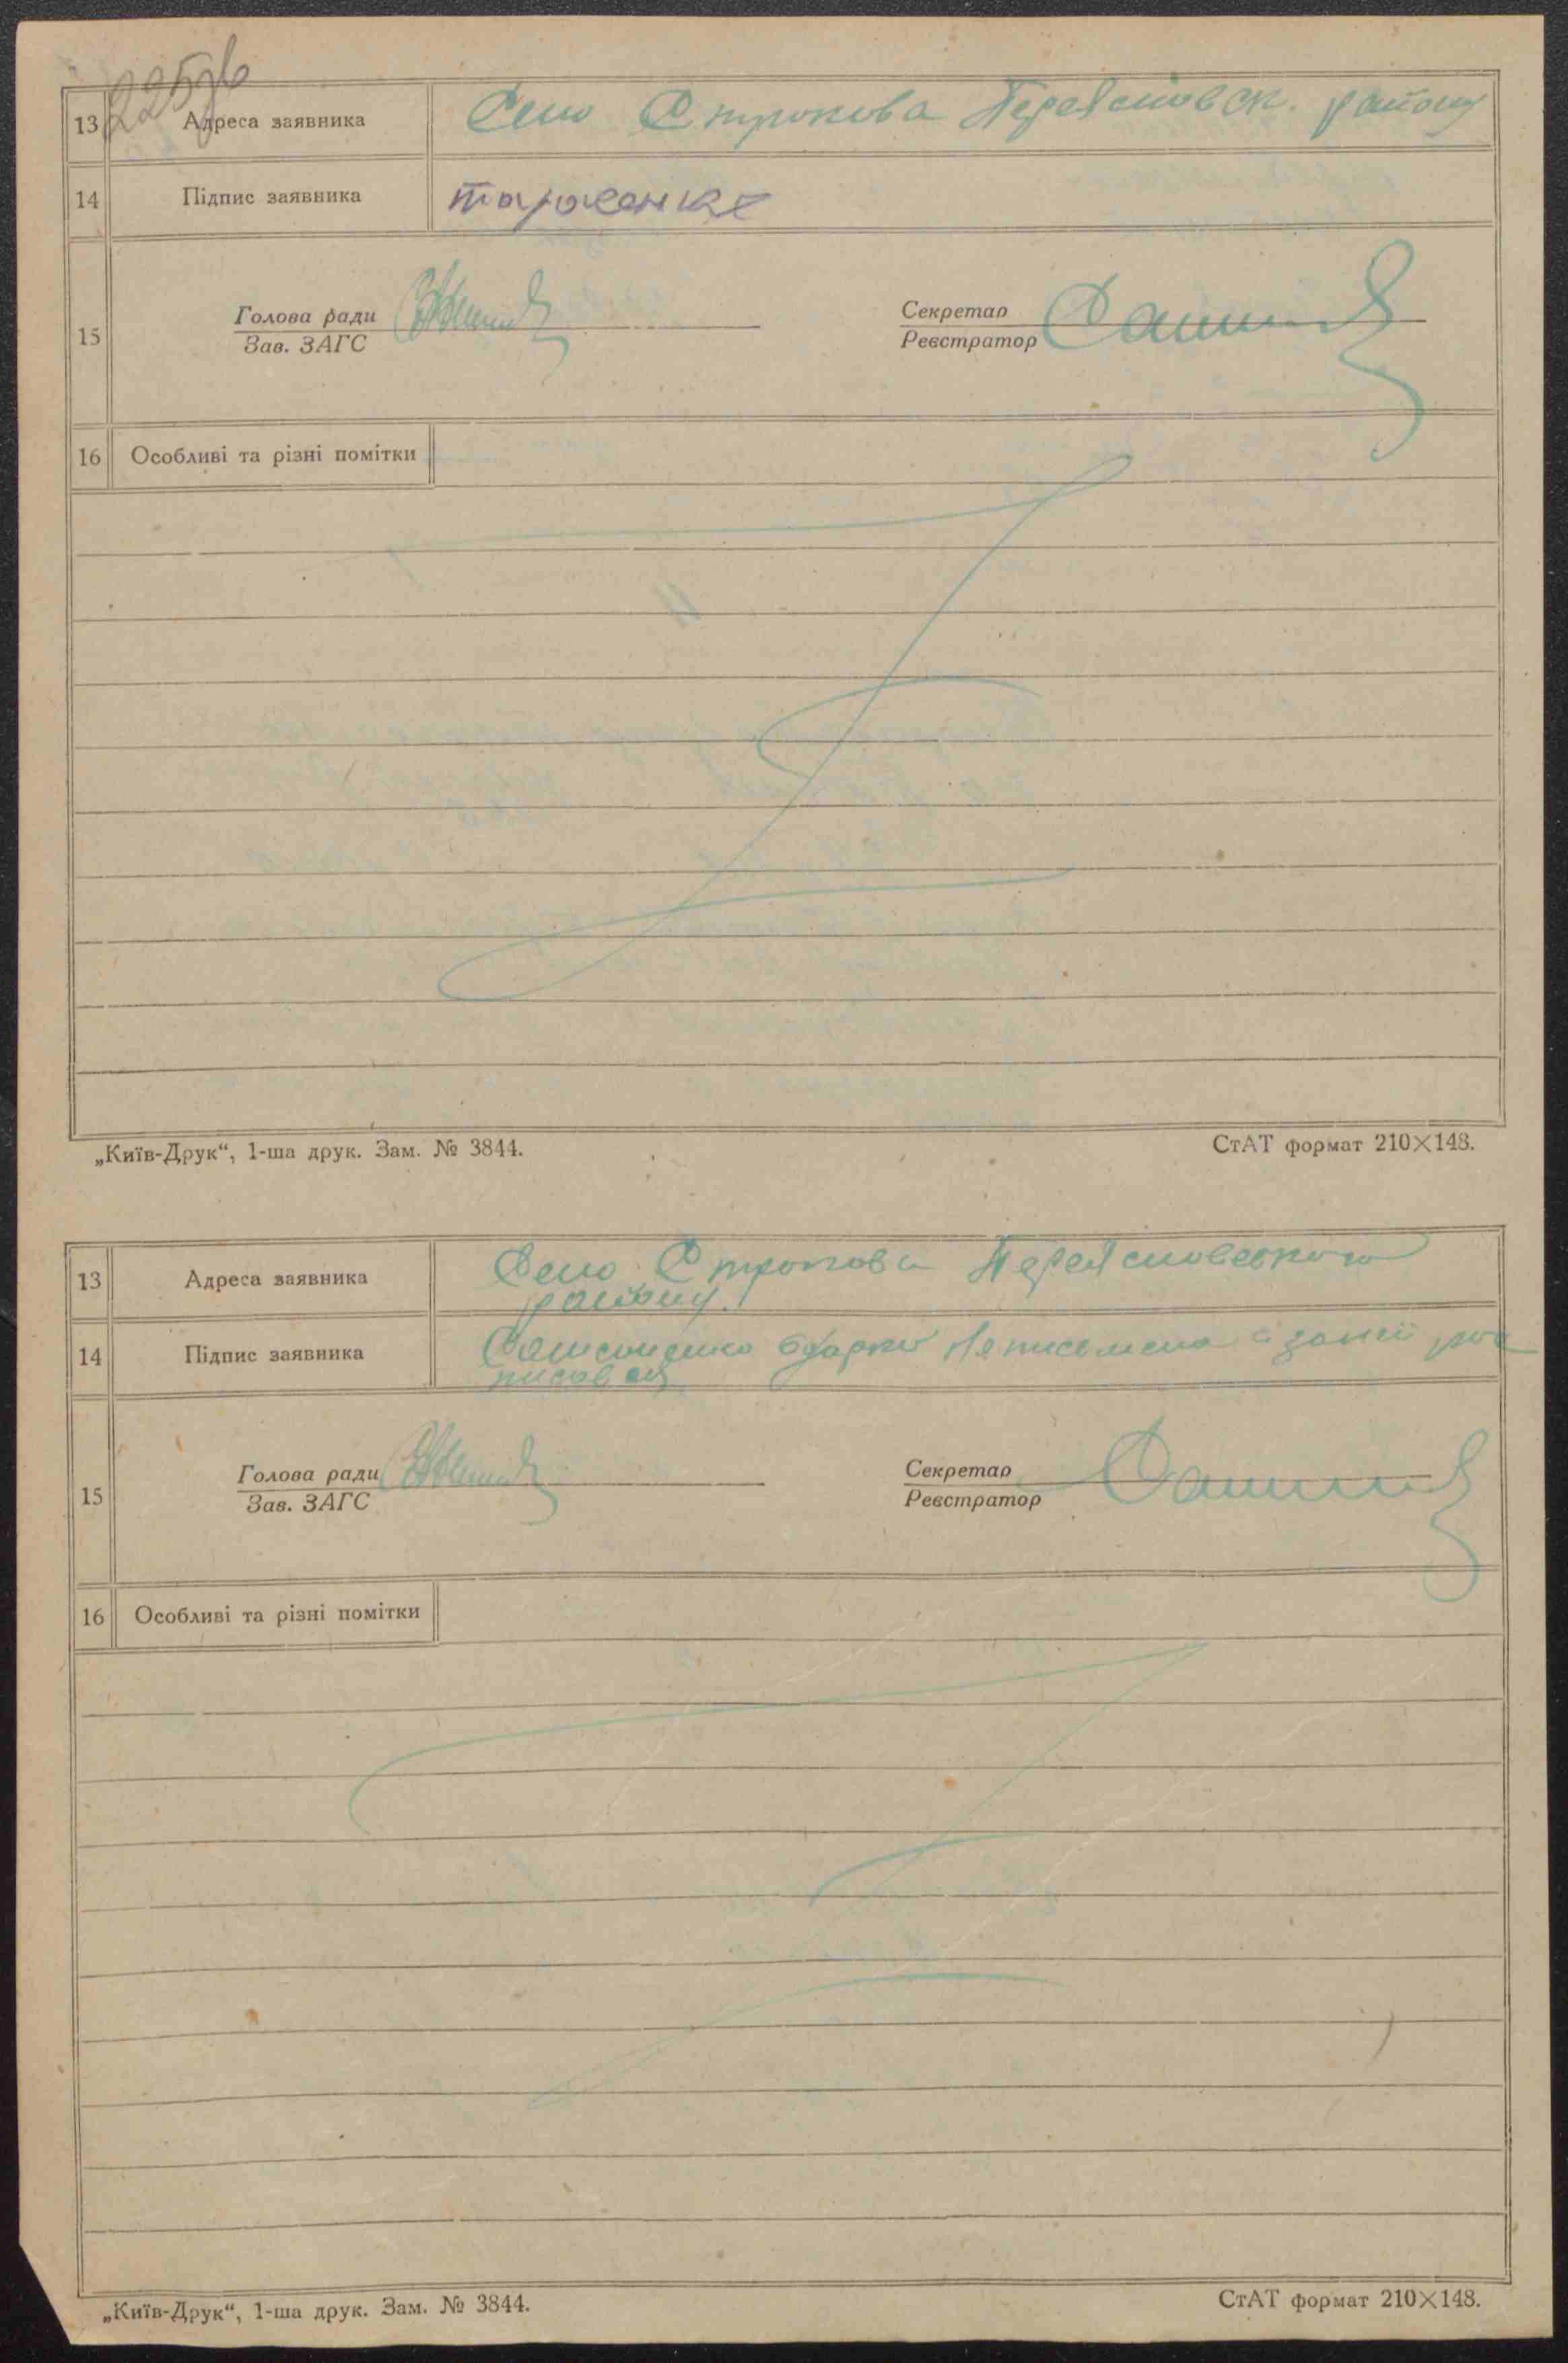 225зв
13 Адреса заявника Село Строкова Переяславск. району
14 Підпис заявника
15 Голова ради Секретар
Зав. ЗАГС Реєстратор
16 Особливі та різні помітки
„Київ-Друк“, 1-ша друк. Зам. № 3844. СтАТ формат 210×148.
13 Адреса заявника Село Строкова Переяславского
району.
14 Підпис заявника Самсоненко Одарка не письмена а за неї рос
писався
15 Голова ради Секретар
Зав. ЗАГС Реєстратор
16 Особливі та різні помітки
„Київ-Друк“, 1-ша друк. Зам. № 3844. СтАТ формат 210×148.